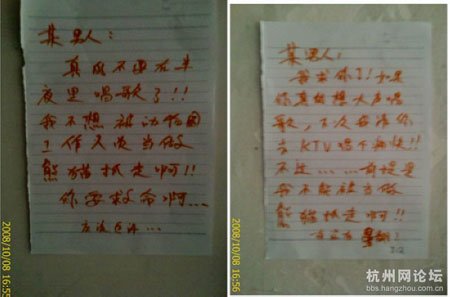 某男人:
真的不要在半
夜里唱歌了!!
我不想被动物园
工作人员当做
熊猫抓走啊!!
你要救命啊...
2008/10/08 16:55
某男人:
我求你了!如果
你真的想大声唱
歌,下次我请你
去KTV唱个痛快!!
不过......前提是
我不能被当做
熊猫抓走啊!!
2008/10/08 16:56
杭州网论坛
bbs.hangzhou.com.cn